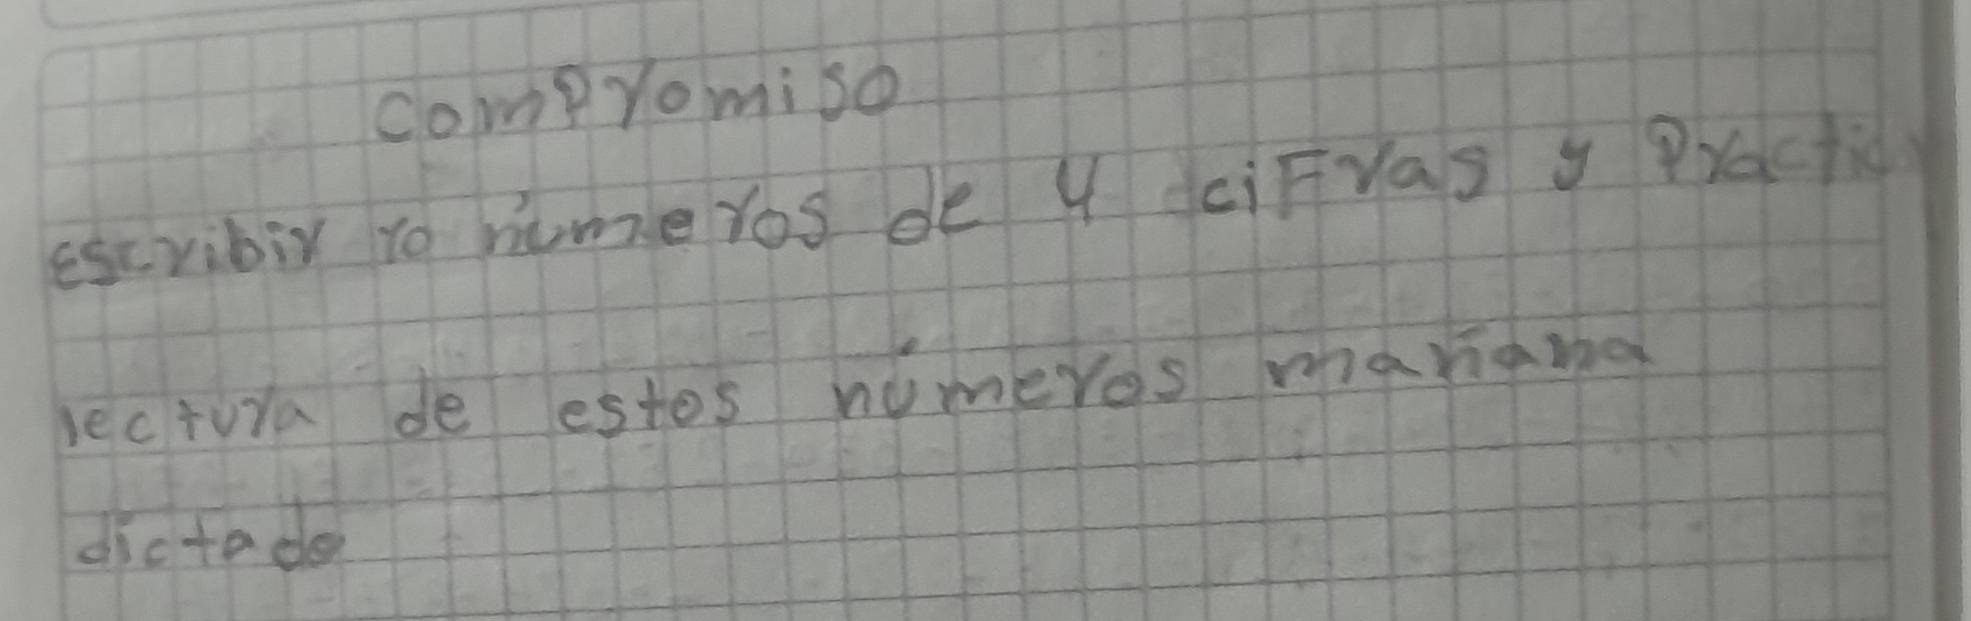 compromiso
escribir 10 números de 4 ciFras y Practic
lectura de estos números mañana
dictado